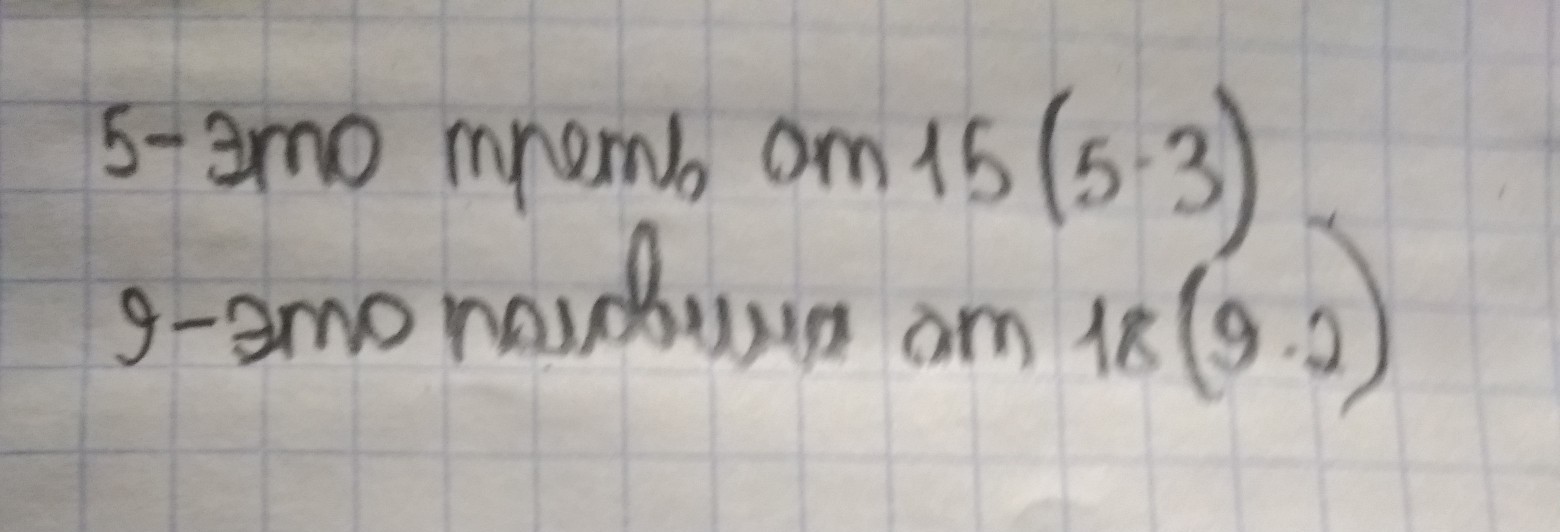 5-это треть от 15 (5·3)
9-это половина от 18 (9·2)